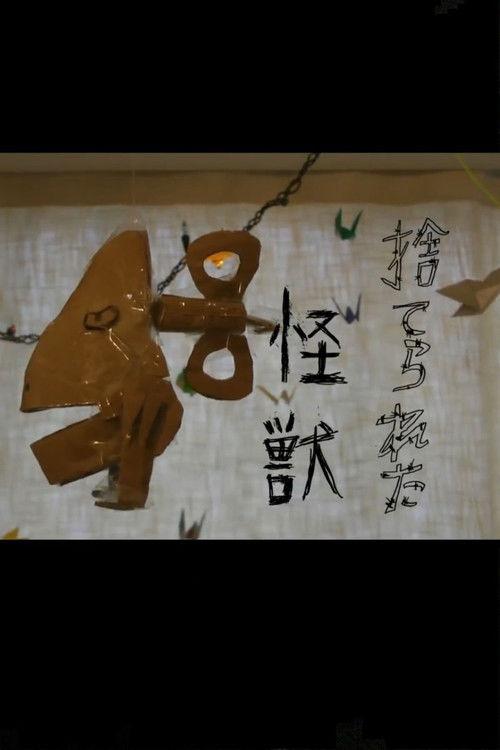 捨てられた
怪獣